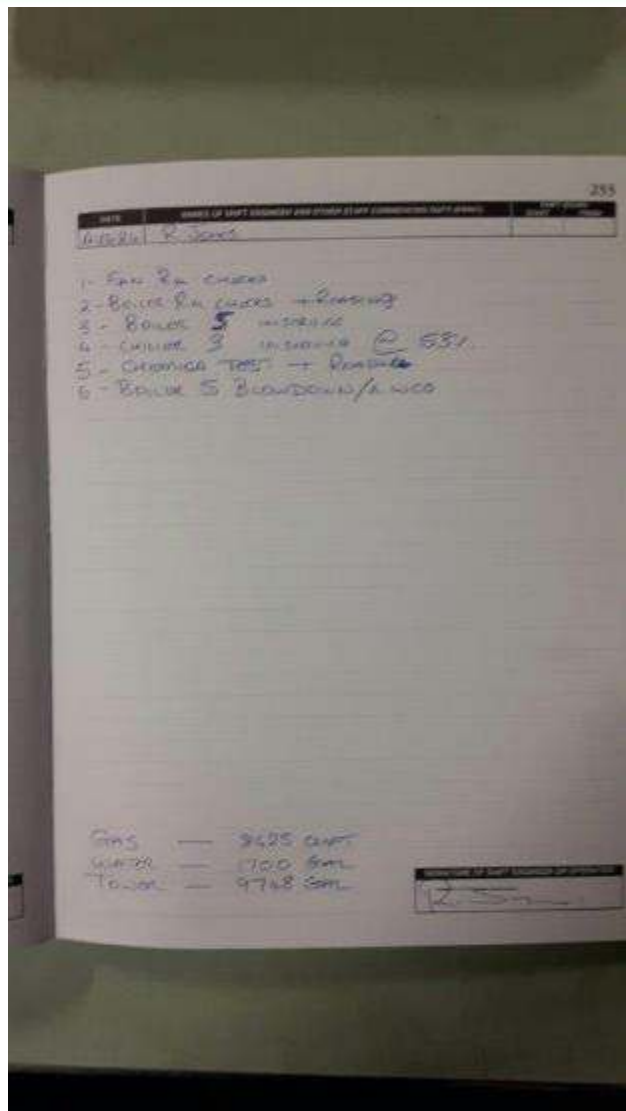 255
DATE NAMES OF SHIFT ENGINEER AND OTHER STAFF COMMENCING SHIFT
START FINISH
R. Jones
1 - FAN RM CHECKS
2 - BOILER RM CHECKS → READINGS
3 - BOILER 5 IN SERVICE
4 - CHILLER 3 IN SERVICE @ 53%
5 - CHEMICAL TEST → READINGS
6 - BOILER 5 BLOWDOWN/LWCO
GAS —
WATER — 1700 GAL
TOWER — 9748 GAL
SIGNATURE OF SHIFT ENGINEER OR OPERATOR